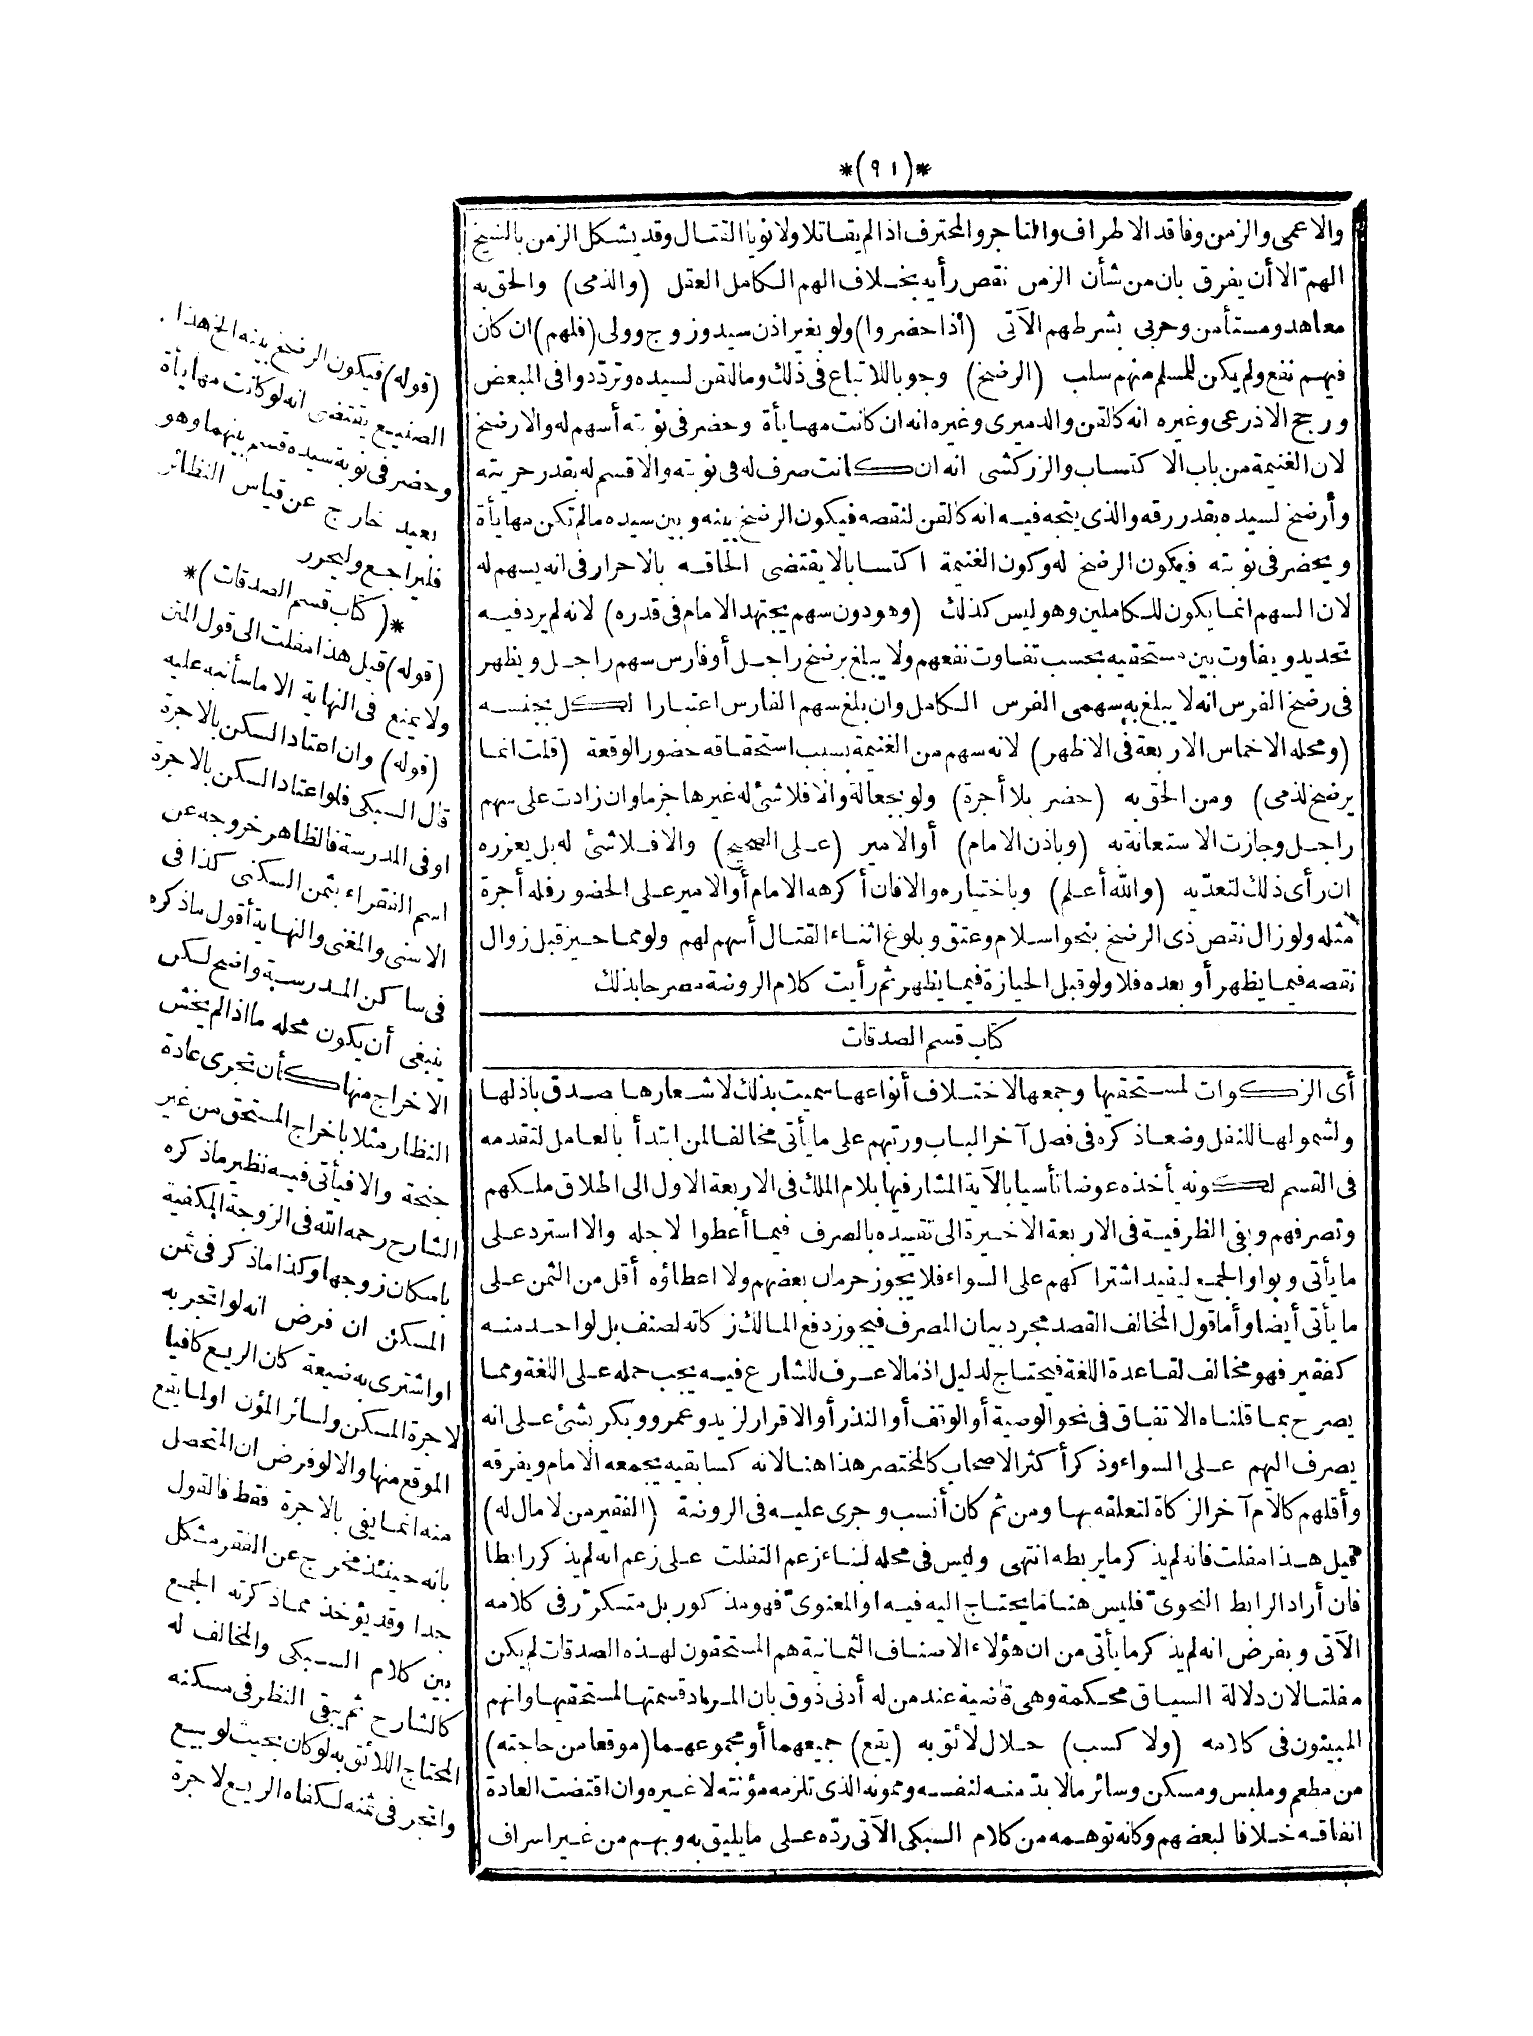 *(٩١)*
والاعمى والزمن وفاقد الاطراف والتاجر والمحترف اذا لم يقاتلا ولا نويا القتال وقد يشكل الزمن بالشيخ
الهمّ الا أن يفرق بان من شأن الزمن نقص رأيه بخلاف الهم الكامل العقل (والذمى) والحق به
معاهد ومستأمن وحربى بشرطهم الآتى (اذا حضروا) ولو بغير اذن سيد وزوج وولى (فلهم) ان كان
فيهم نفع ولم يكن للمسلم منهم سلب (الرضخ) وجوبا للاتباع فى ذلك وما للقن لسيده وتردّدوا فى المبعض
ورجح الاذرعى وغيره انه كالقن والدميرى وغيره انه ان كانت مهايأة وحضر فى نوبته أسهم له والا رضخ
لان الغنيمة من باب الاكتساب والزركشى انه ان كانت صرف له فى نوبته والا قسم له بقدر حريته
وأرضخ لسيده بقدر رقه والذى يتجه فيه انه كالقن لنقصه فيكون الرضخ بينه وبين سيده مالم تكن مهايأة
ويحضر فى نوبته فيكون الرضخ له وكون الغنيمة اكتسابا لا يقتضى الحاقه بالاحرار فى انه يسهم له
لان السهم انما يكون للكاملين وهو ليس كذلك (وهو دون سهم يجتهد الامام فى قدره) لانه لم يرد فيه
تحديد ويفاوت بين مستحقيه بحسب تفاوت نفعهم ولا يبلغ برضخ راجل أو فارس سهم راجل ويظهر
فى رضخ الفرس انه لا يبلغ به سهمى الفرس الكامل وان بلغ سهم الفارس اعتبارا لكل بجنسه
(ومحله الاخماس الاربعة فى الاظهر) لانه سهم من الغنيمة بسبب استحقاقه حضور الوقعة (قلت انما
يرضخ لذمى) ومن الحق به (حضر بلا أجرة) ولو بجعالة والا فلا شئ له غيرها جزما وان زادت على سهم
راجل وجازت الاستعانة به (وباذن الامام) أو الامير (على الصحيح) والا فلا شئ له بل يعزره
ان رأى ذلك لتعدّيه (والله أعلم) وباختياره والا فان أكرهه الامام أو الامير على الحضور فله أجرة
مثله ولو زال نقص ذى الرضخ بنحو اسلام وعتق وبلوغ اثناء القتال أسهم لهم ولو مما حيز قبل زوال
نقصه فيما يظهر أو بعده فلا ولو قبل الحيازة فيما يظهر ثم رأيت كلام الروضة مصرحا بذلك
كتاب قسم الصدقات
أى الزكوات لمستحقيها وجمعها لاختلاف أنواعها سميت بذلك لاشعارها بصدق باذلها
ولشمولها للنفل وضعا ذكره فى فصل آخر الباب ورتبهم على ما يأتى مخالفا لمن ابتدأ بالعامل لتقدمه
فى القسم لكونه يأخذه عوضا تأسيا بالآية المشار فيها بلام الملك فى الاربعة الاول الى اطلاق ملكهم
وتصرفهم وبفى الظرفية فى الاربعة الاخيرة الى تقييده بالصرف فيما أعطوا لاجله والا استرد على
ما يأتى وبواو الجمع ليفيد اشتراكهم على السواء فلا يجوز حرمان بعضهم ولا اعطاؤه أقل من الثمن على
ما يأتى أيضا وأما قول المخالف القصد مجرد بيان المصرف فيجوز دفع المالك زكاته لصنف بل لواحد منه
كفقير فهو مخالف لقاعدة اللغة فيحتاج لدليل اذ مالا عرف للشارع فيه يجب حمله على اللغة ومما
يصرح بما قلناه الاتفاق فى نحو الوصية أو الوقف أو النذر أو الاقرار لزيد وعمرو وبكر بشئ على انه
يصرف اليهم على السواء وذكر أكثر الاصحاب كالمختصر هذا هنا لانه كسابقيه يجمعه الامام ويفرقه
وأقلهم كالام آخر الزكاة لتعلقه بها ومن ثم كان أنسب وجرى عليه فى الروضة (الفقير من لا مال له)
قيل هذا مفلت فانه لم يذكر ما يربطه انتهى وليس فى محله لبناء زعم التفلت على زعم انه لم يذكر رابطا
فان أراد الرابط النحوىّ فليس هنا ما يحتاج اليه فيه او المعنوىّ فهو مذكور بل متكرّر فى كلامه
الآتى وبفرض انه لم يذكر ما يأتى من ان هؤلاء الاصناف الثمانية هم المستحقون لهذه الصدقات لم يكن
مفلتا لان دلالة السياق محكمة وهى قاضية عند من له أدنى ذوق بان المراد قسمتها لمستحقيها وانهم
المبينون فى كلامه (ولا كسب) حلال لائق به (يقع) جميعهما أو مجموعهما (موقعا من حاجته)
من مطعم وملبس ومسكن وسائر مالا بدّ منه لنفسه وممونه الذى تلزمه مؤنته لا غيره وان اقتضت العادة
انفاقه خلافا لبعضهم وكانه توهمه من كلام السبكى الآتى ردّه على ما يليق به وبهم من غير اسراف
(قوله) فيكون الرضخ بينه الخ هذا
الصنيع يقتضى انه لو كانت مهايأة
وحضر فى نوبة سيده قسم بينهما وهو
بعيد خارج عن قياس النظائر
فليراجع وليحرر
*(كتاب قسم الصدقات)*
(قوله) قيل هذا مفلت الى قول المتن
ولا يمنع فى النهاية الا ما سأنبه عليه
(قوله) وان اعتاد السكن بالاجرة
قال السبكى فلو اعتاد السكن بالاجرة
او فى المدرسة فالظاهر خروجه عن
اسم الفقراء بثمن السكنى كذا فى
الاسنى والمغنى والنهاية أقول ماذكره
فى ساكن المدرسة واضح لكن
ينبغى أن يكون محله ما اذا لم يخش
الاخراج منها كأن تجرى عادة
النظار مثلا باخراج المستحق من غير
جنحة والا فيأتى فيه نظير ماذكره
الشارح رحمه الله فى الزوجة المكفية
باسكان زوجها وكذا ماذكر فى ثمن
المسكن ان فرض انه لو اتجر به
او اشترى به ضيعة كان الريع كافيا
لاجرة المسكن ولسائر المؤن او لما يقع
الموقع منها والا لو فرض ان المتحصل
منه انما يفى بالاجرة فقط فالقول
بانه حينئذ مخرج عن الفقر مشكل
جدا وقد يؤخذ مما ذكرته الجمع
بين كلام السبكى والمخالف له
كالشارح ثم يبقى النظر فى مسكنه
المحتاج اللائق به لو كان بحيث لو بيع
واتجر فى ثمنه لكفاه الريع لاجرة